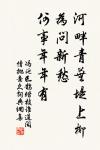 河畔青蕪堤上柳
為問新愁
何事年年有
馮延巳鵲踏枝誰道閒
情拋棄久